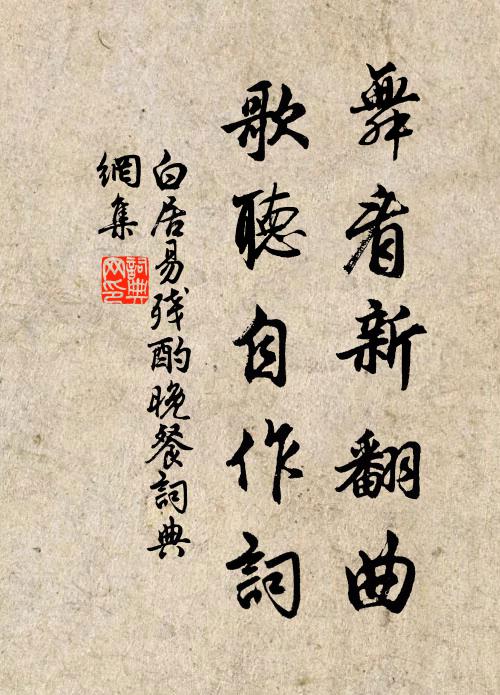 舞看新翻曲
歌聽自作詞
白居易残酌晚餐詞典
網集
詞典网印